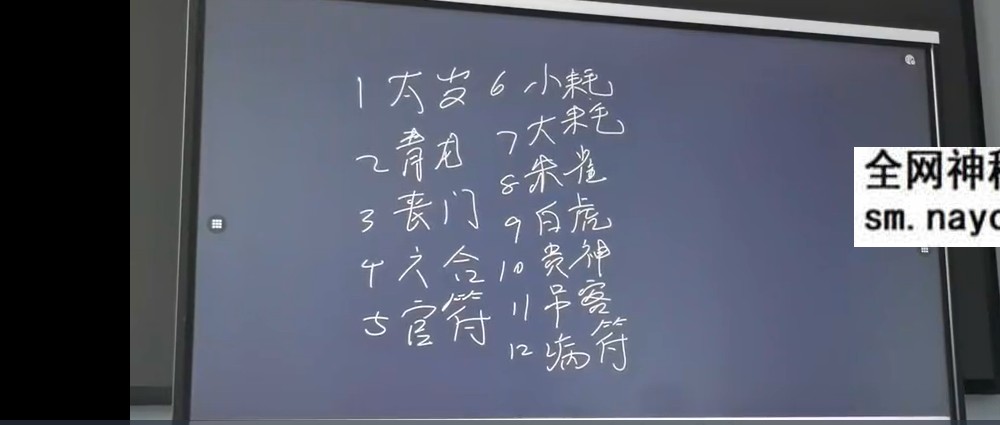 1 太岁
2 青龙
3 丧门
4 六合
5 官符
6 小耗
7 大耗
8 朱雀
9 白虎
10 贵神
11 吊客
12 病符
全网神
sm.nayc